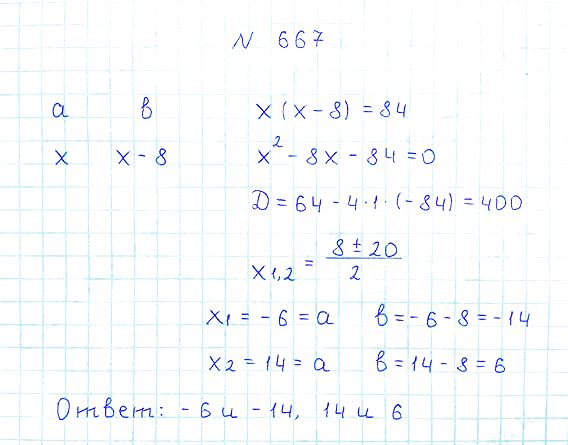 N 667
а в x(x-8)=84
x x-8 x²-8x-84=0
D=64-4·1·(-84)=400
x1,2 = (8±20)/2
x1=-6=a в=-6-8=-14
x2=14=a в=14-8=6
Ответ: -6 и -14, 14 и 6